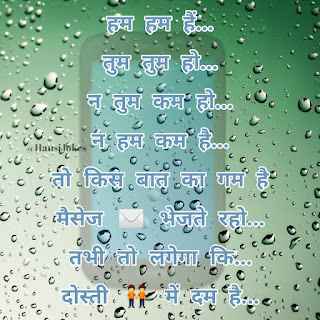 हम हम हैं...
तुम तुम हो...
न तुम कम हो...
न हम कम है...
@HansiJokes
तो किस बात का गम है
मैसेज ✉️ भेजते रहो...
तभी तो लगेगा कि...
दोस्ती 👬 में दम है...